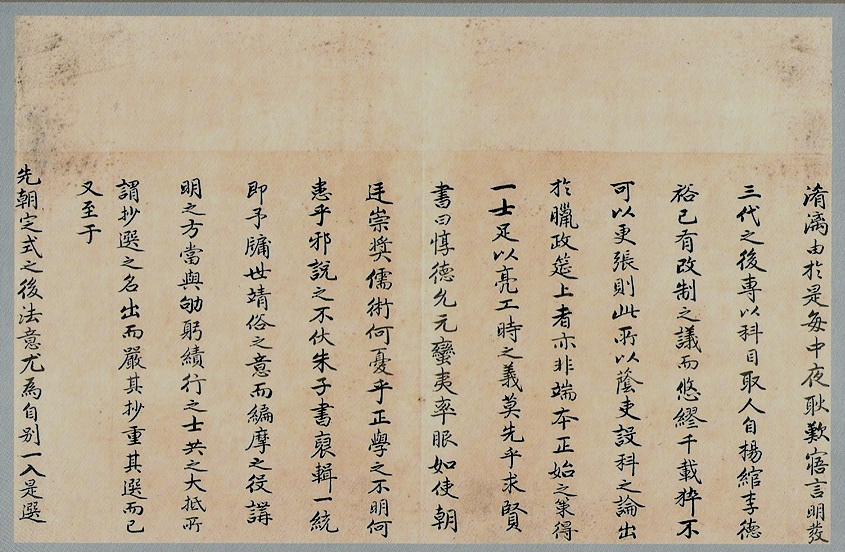 淆漓由於是每中夜耿歎寤言明發
三代之後專以科目取人自楊綰李德
裕已有改制之議而悠繆千載猝不
可以更張則此所以蔭吏設科之論出
於臘政筵上者亦非端本正始之策得
一士足以亮工時之義莫先乎求賢
書曰惇德允元蠻夷率服如使朝
廷崇奬儒術何憂乎正學之不明何
恚乎邪說之不伏朱子書裒輯一統
即予牖世靖俗之意而編摩之役講
明之方當與劬躬績行之士共之大抵所
謂抄選之名出而嚴其抄重其選而已
又至于
先朝定式之後法意尤爲自別一入是選